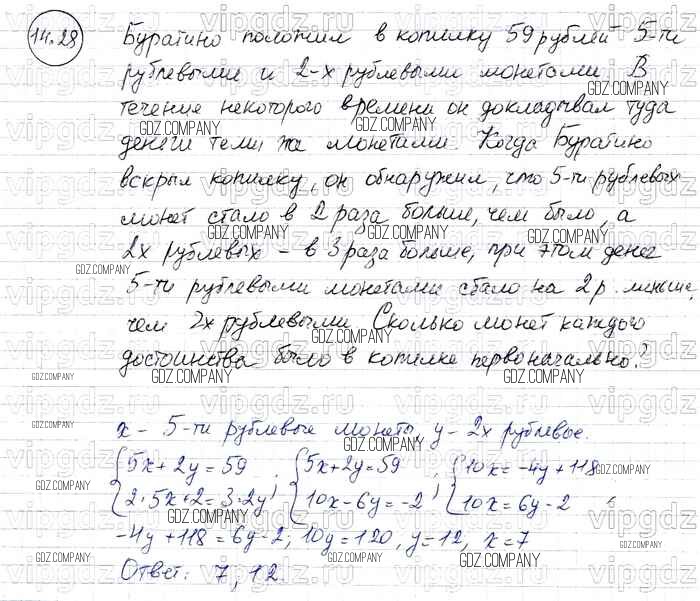 14.28
Буратино положил в копилку 59 рублей 5-ти
рублевыми и 2-х рублевыми монетами. В
течение некоторого времени он докладывал туда
деньги теми же монетами. Когда Буратино
вскрыл копилку, он обнаружил, что 5-ти рублевых
монет стало в 2 раза больше, чем было, а
2х рублевых – в 3 раза больше, при этом денег
5-ти рублевыми монетами стало на 2 р. меньше,
чем 2х рублевыми. Сколько монет каждого
достоинства было в копилке первоначально?
x – 5-ти рублевые монеты, y – 2х рублевые.
{5x+2y=59 ; {5x+2y=59 ; {10x=-4y+118
{2·5x+2=3·2y {10x-6y=-2 {10x=6y-2
-4y+118=6y-2; 10y=120, y=12, x=7
Ответ: 7, 12.
vipgdz.ru
GDZ.COMPANY